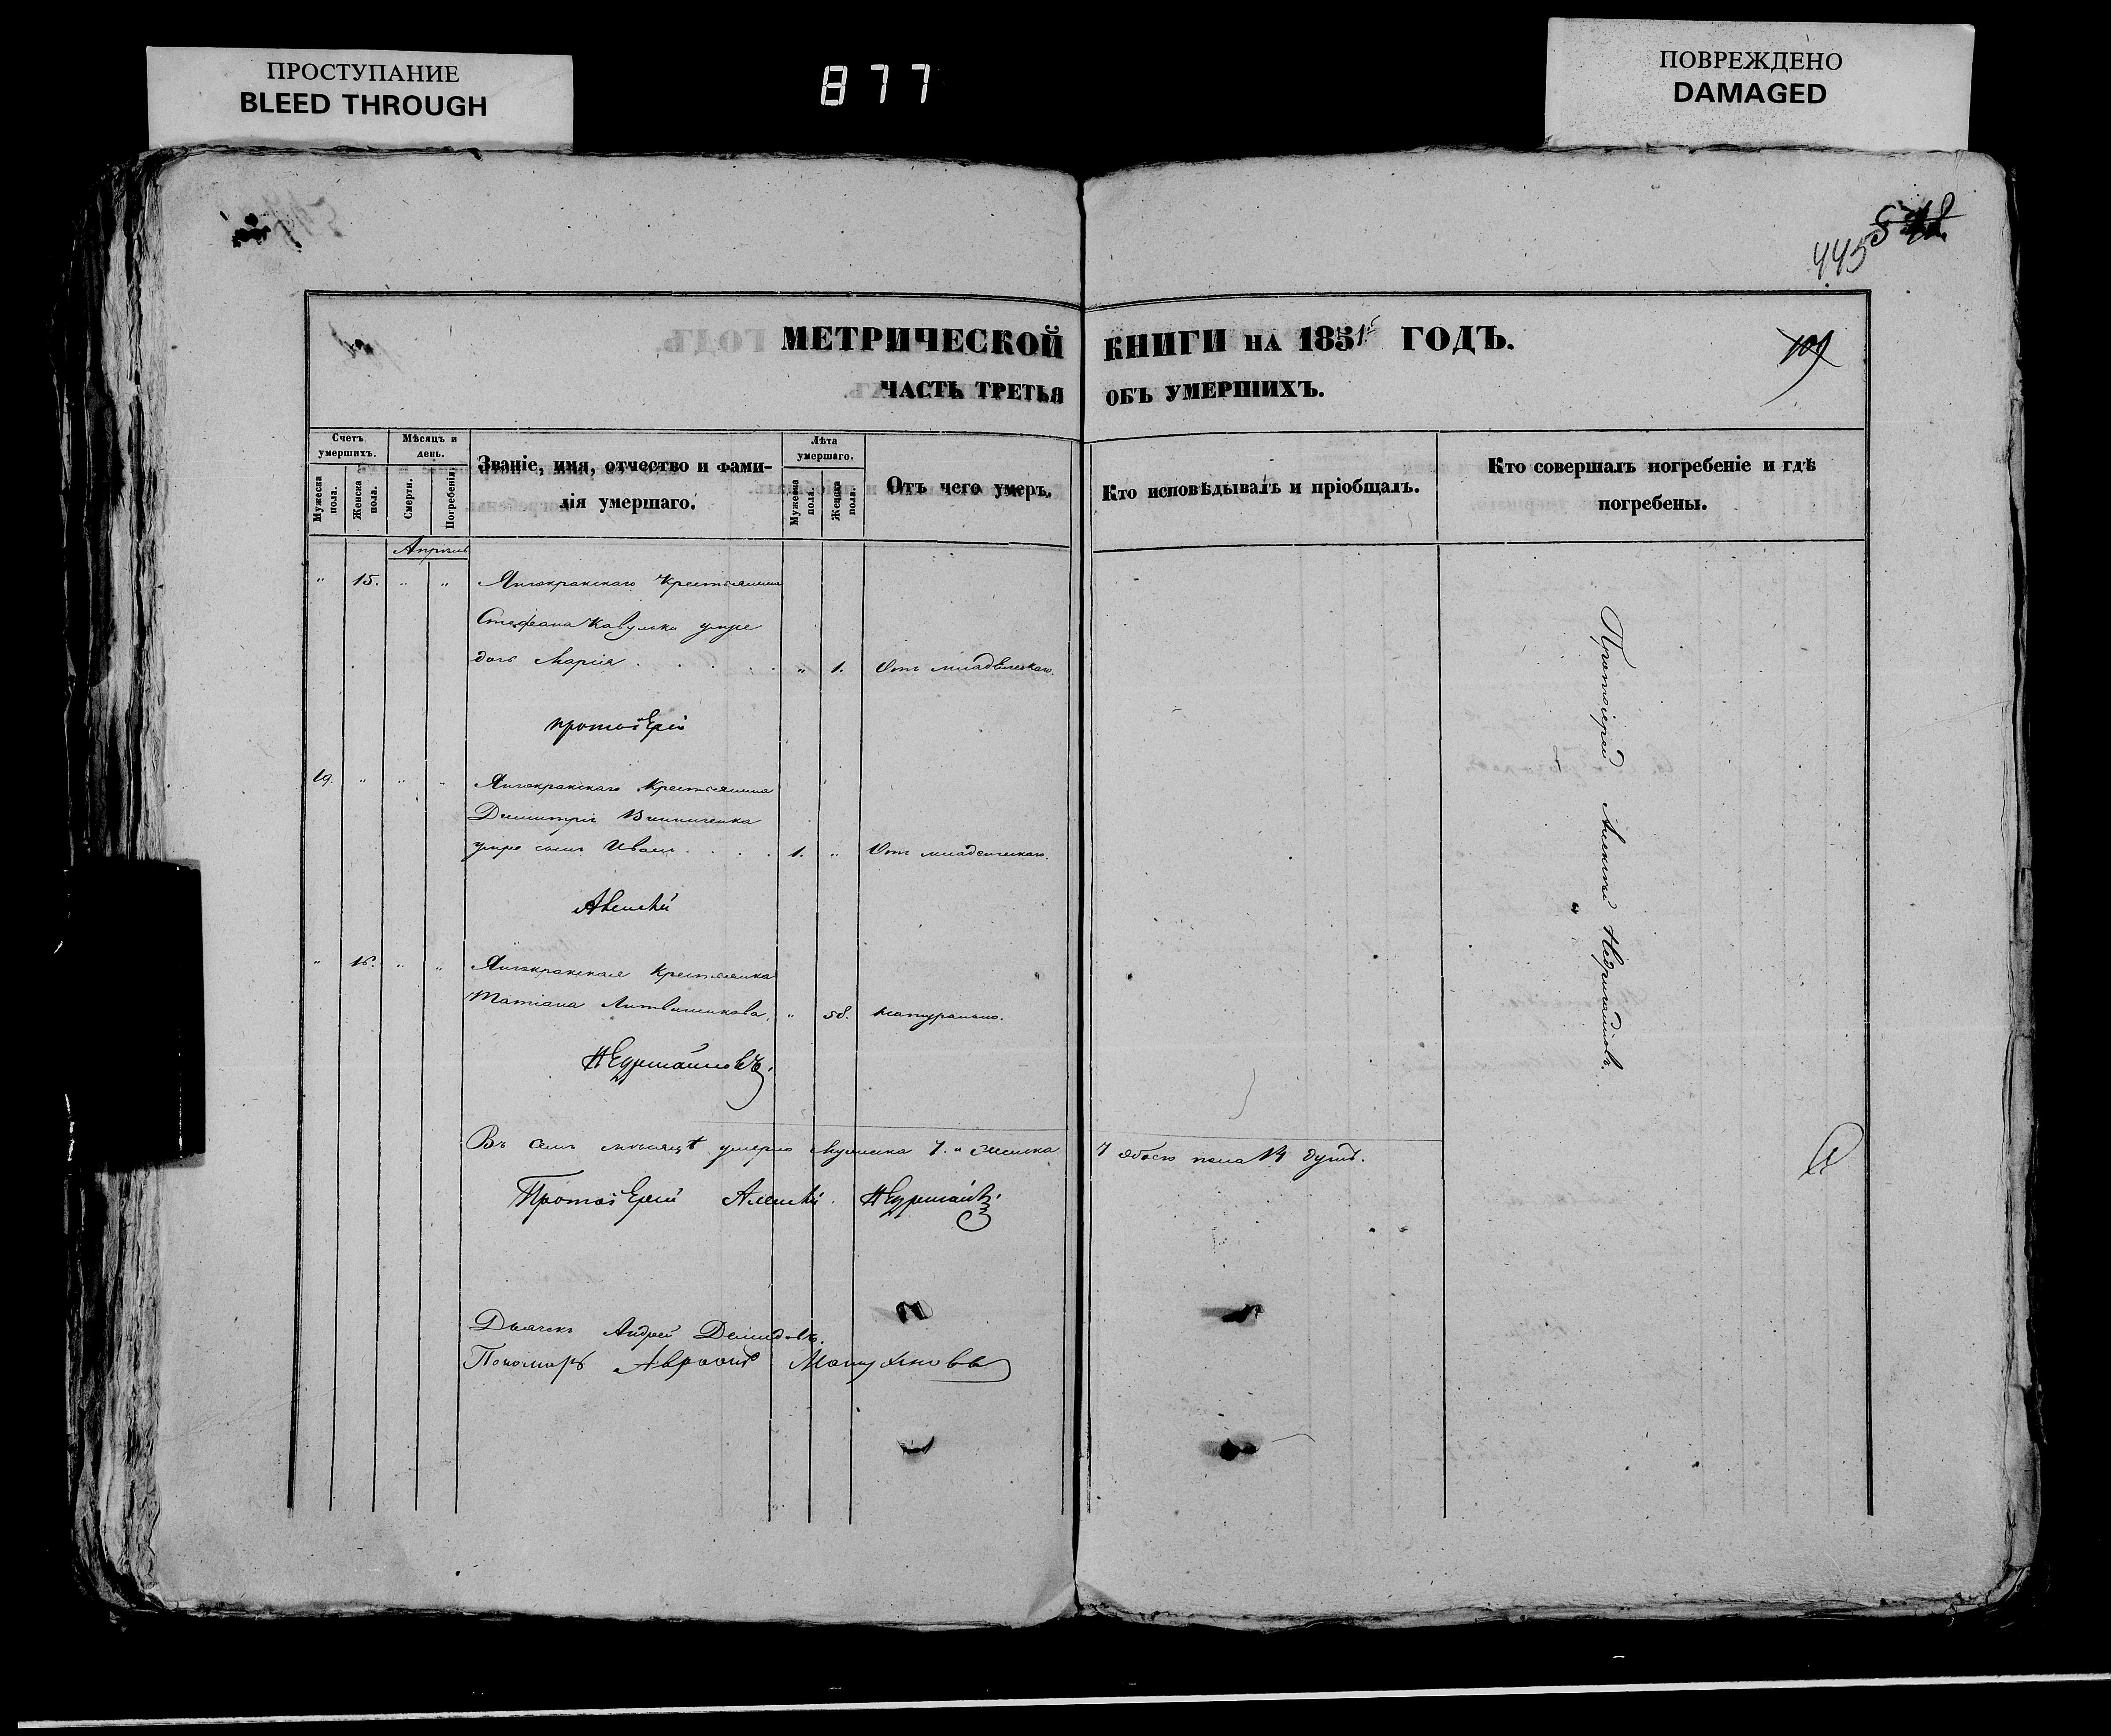 ПРОСТУПАНИЕ
BLEED THROUGH
877
ПОВРЕЖДЕНО
DAMAGED
445
109
МЕТРИЧЕСКОЙ КНИГИ НА 1851 ГОДЪ.
ЧАСТЬ ТРЕТЬЯ ОБЪ УМЕРШИХЪ.
Счетъ умершихъ.
Мужеска пола.
Женска пола.
Мѣсяцъ и день.
Смерти.
Погребенія.
Званіе, имя, отчество и фами-
лія умершаго.
Лѣта умершаго.
Мужеска пола.
Женска пола.
Отъ чего умеръ.
Кто исповѣдывалъ и пріобщалъ.
Кто совершалъ погребеніе и гдѣ
погребены.
Апрель
" 15. " " Янчокракскаго Крестьянина
Стефана умре
дочь Марія . . . . " 1. Отъ младенческаго.
протоіерей
19. " " " Янчокракскаго Крестьянина
Димитрія Винниченка
умре сынъ Иванъ . . . . 1. " Отъ младенческаго.
Алексѣй
" 16. " " Янчокракская Крестьянка
Татіана Литвиникова. " 58. Натурально.
Протоіерей Алексѣй
Въ семъ мѣсяцѣ умерло мужеска 7. и женска 7 обоего пола 14 душъ.
Протоіерей Алексѣй
Дьячекъ Андрей Демидовъ.
Пономарь